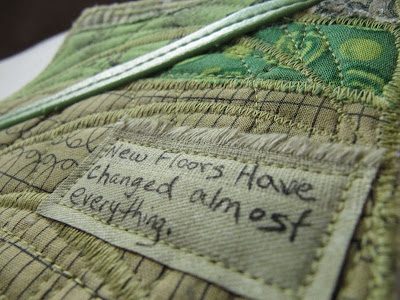 New Floors Have
changed almost
everything.